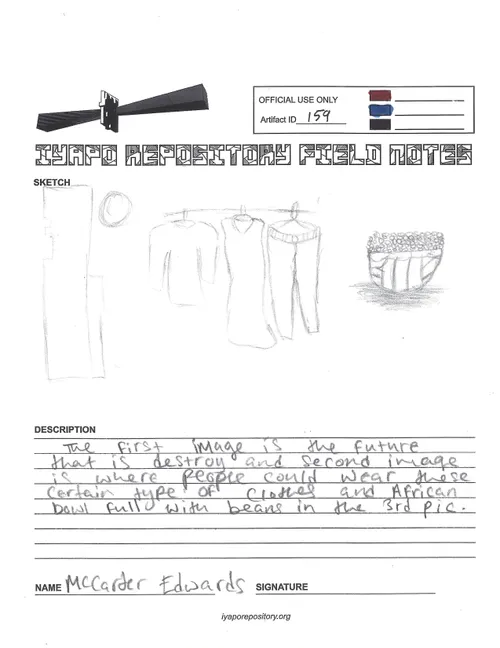 OFFICIAL USE ONLY
Artifact ID 159
IYAPO REPOSITORY FIELD NOTES
SKETCH
DESCRIPTION
The first image is the future
that is destroy and second image
is where people could wear these
certain type of clothes and African
bowl full with beans in the 3rd pic.
NAME McCarder Edwards SIGNATURE
iyaporepository.org